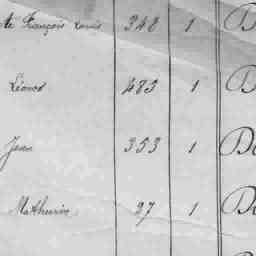 te François Louis 348 1 D
Léonod 483 1 D
Jean 353 1 De
Mathurin 37 1 De